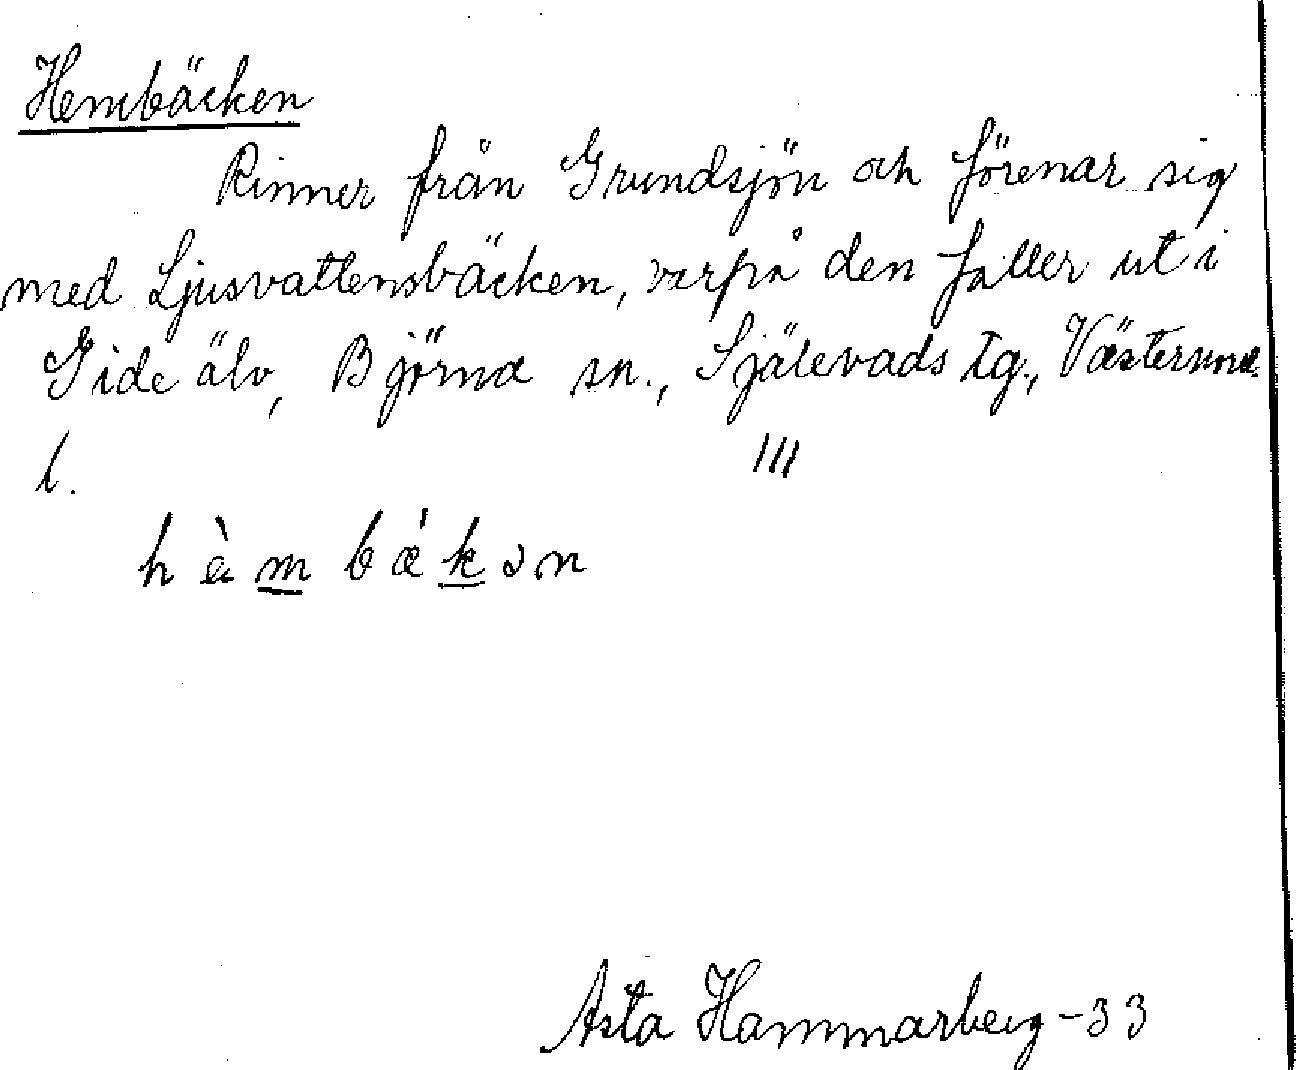 Hembäcken
Rinner från Grundsjön och förenar sig
med Ljusvattensbäcken, varpå den faller ut i
Gide älv, Björna sn., Själevads tg., Västernorrl.
l.
III
h è m b æ' k ə n
Asta Hammarberg -33